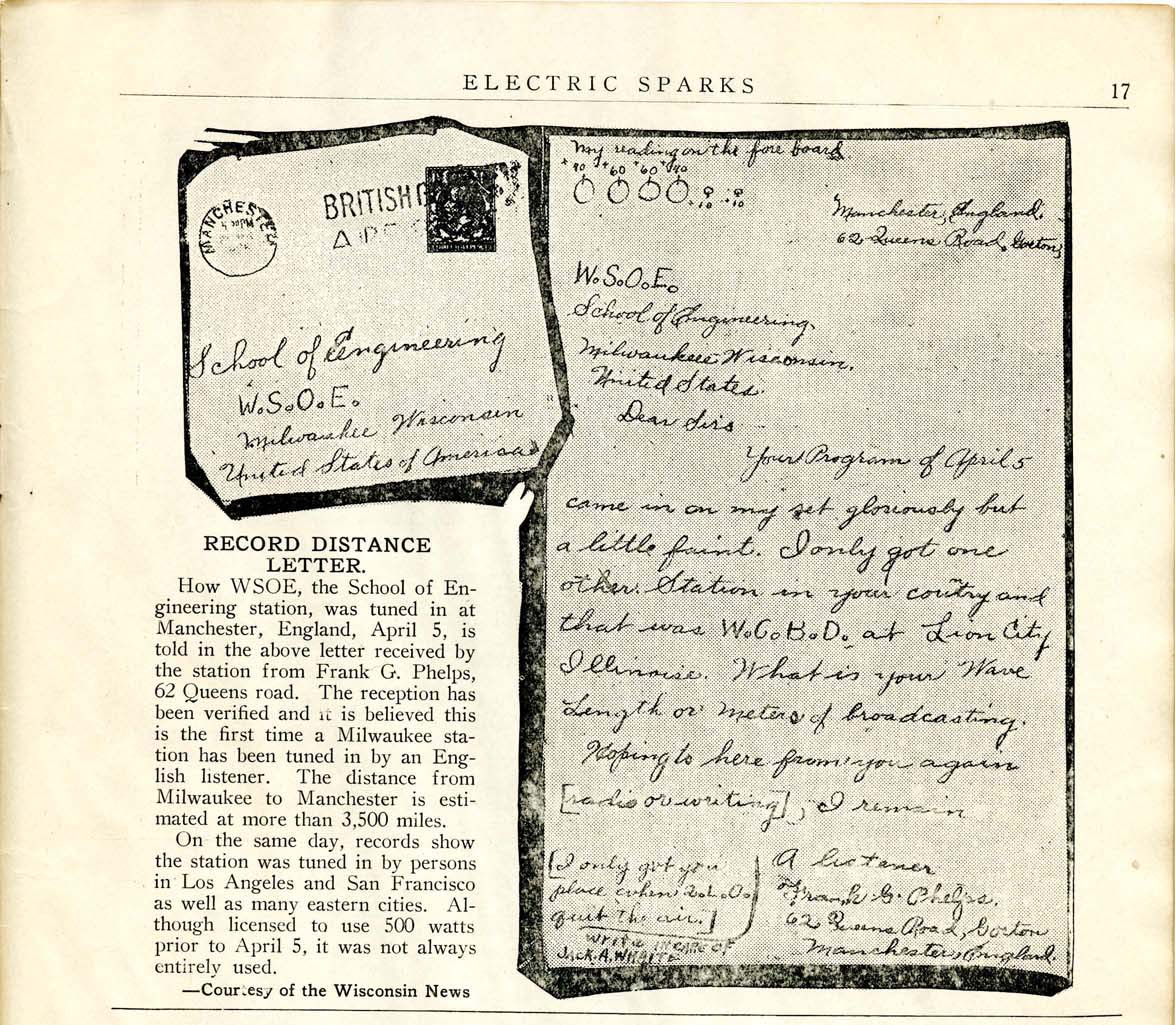 ELECTRIC SPARKS
17
MANCHESTER
BRITISH
School of Engineering
W.S.O.E.
Milwaukee Wisconsin
United States of America
My reading on the fore board.
+90 +60 +60 +40
Manchester, England.
62 Queens Road, Gorton,
W.S.O.E.
School of Engineering.
Milwaukee Wisconsin.
United States.
Dear Sirs
Your Program of April 5
came in on my set gloriously but
a little faint. I only got one
other. Station in your coutry and
that was W.C.B.D. at Lion City
Illinoise. What is your Wave
Length or meters of broadcasting.
Hoping to here from you again
[radio or writing], I remain
[I only got you
place when 2.L.O.
quit the air.]
write IN CARE OF
JACK.A.
A listener
Frank G. Phelps.
62 Queens Road, Gorton
Manchester, England.
RECORD DISTANCE
LETTER.
How WSOE, the School of En-
gineering station, was tuned in at
Manchester, England, April 5, is
told in the above letter received by
the station from Frank G. Phelps,
62 Queens road. The reception has
been verified and it is believed this
is the first time a Milwaukee sta-
tion has been tuned in by an Eng-
lish listener. The distance from
Milwaukee to Manchester is esti-
mated at more than 3,500 miles.
On the same day, records show
the station was tuned in by persons
in Los Angeles and San Francisco
as well as many eastern cities. Al-
though licensed to use 500 watts
prior to April 5, it was not always
entirely used.
—Courtesy of the Wisconsin News